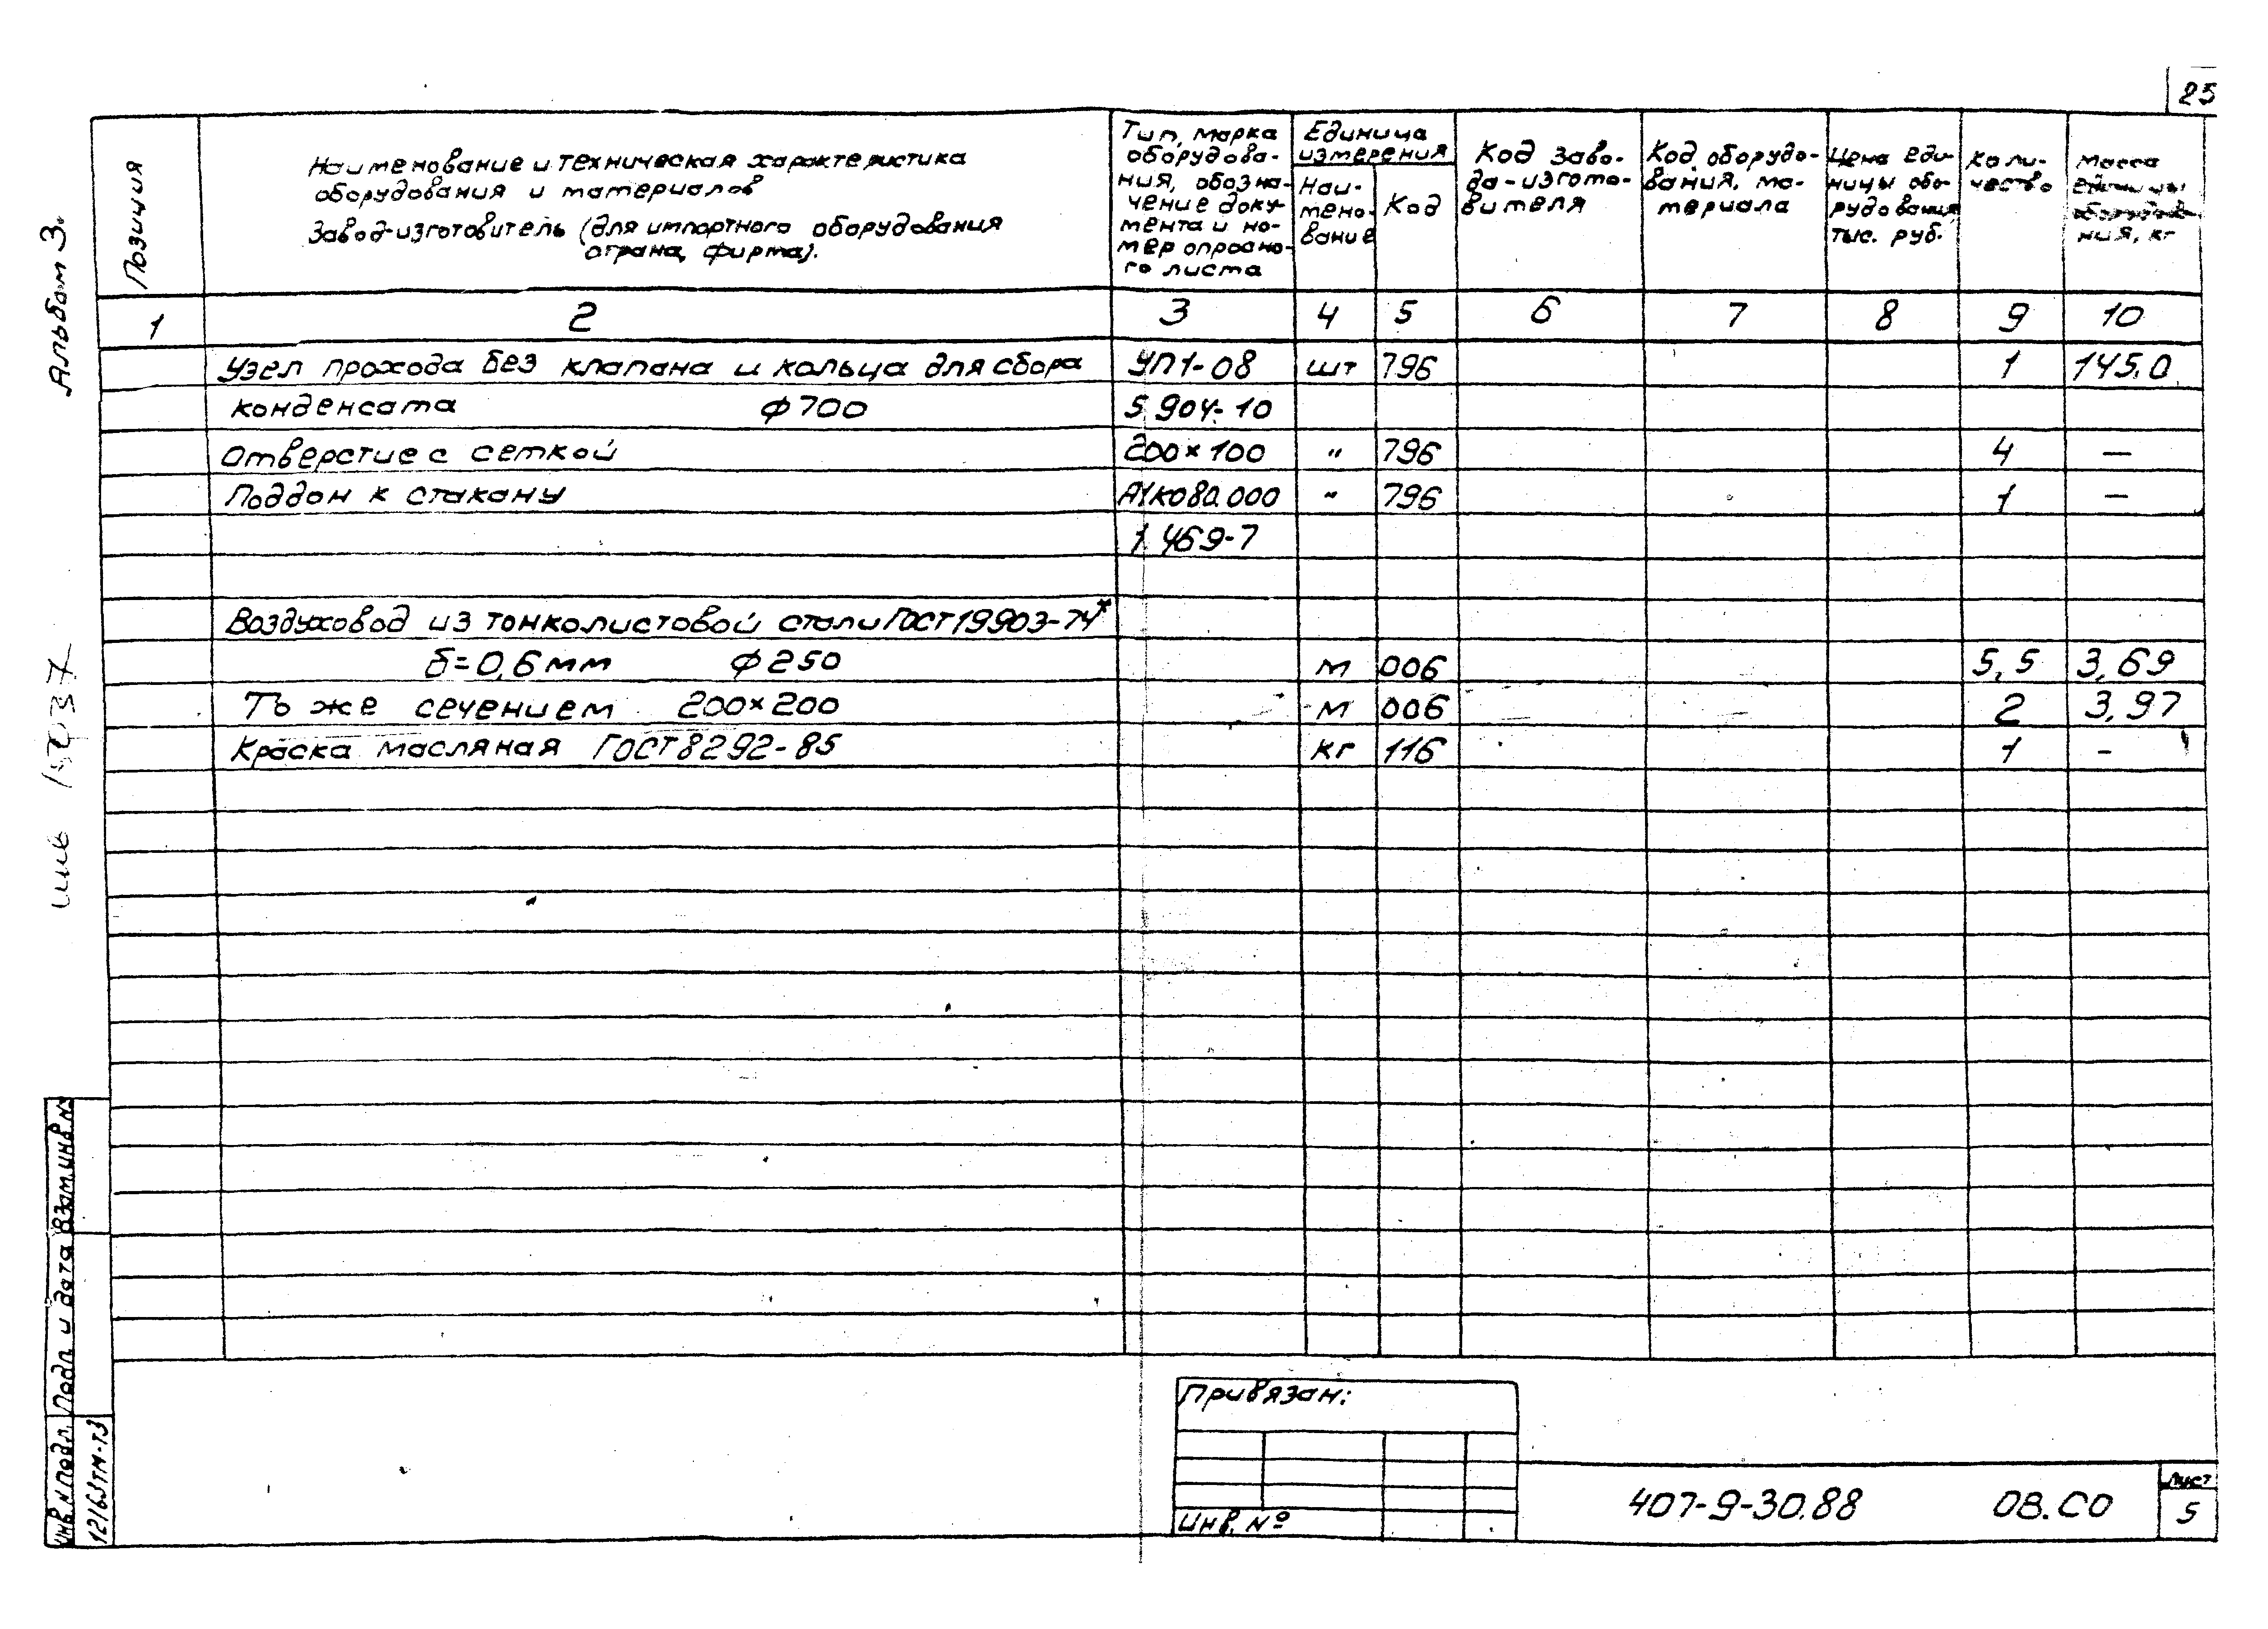 25
Альбом 3.
Позиция
Наименование и техническая характеристика
оборудования и материалов
Завод-изготовитель (для импортного оборудования
страна, фирма).
Тип, марка
оборудова-
ния, обозна-
чение доку-
мента и но-
мер опросно-
го листа
Единица
измерения
Наи-
мено-
вание
Код
Код заво-
да-изгото-
вителя
Код оборудо-
вания, ма-
териала
Цена еди-
ницы обо-
рудования
тыс. руб.
Коли-
чество
Масса
единицы
оборудова-
ния, кг
1 2 3 4 5 6 7 8 9 10
Узел прохода без клапана и кольца для сбора УП1-08 шт 796 1 145,0
конденсата ф700 5.904-10
Отверстие с сеткой 200×100 " 796 4 —
Поддон к стакану А1К080.000 " 796 1 —
1.469-7
Воздуховод из тонколистовой стали ГОСТ 19903-74*
δ=0,6мм ф250 м 006 5,5 3,69
То же сечением 200×200 м 006 2 3,97
Краска масляная ГОСТ 8292-85 кг 116 1 -
Взам.инв.№
Подп. и дата
Инв.№подл.
12163ТМ-Т3
Привязан:
Инв. №
407-9-30.88 ОВ.СО
Лист
5